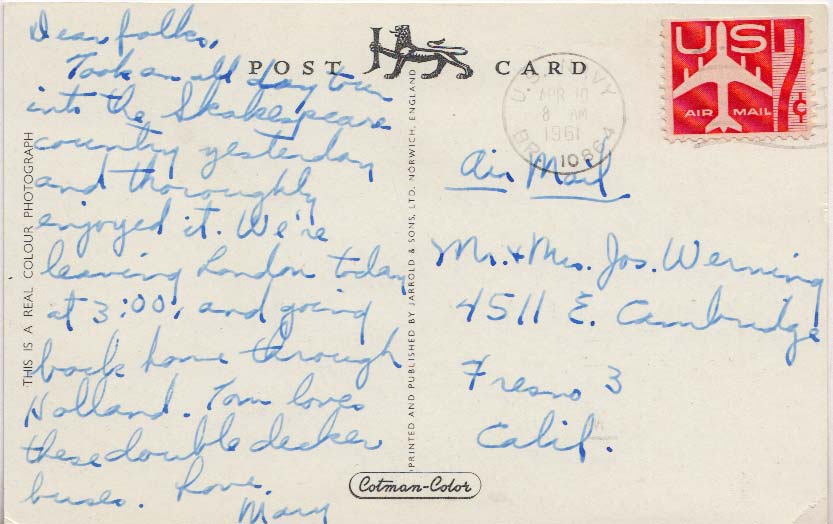 Dear folks,
Took an all day tour
into the Shakespeare
country yesterday
and thoroughly
enjoyed it. We're
leaving London today
at 3:00, and going
back home through
Holland. Tom loves
these double decker
buses. Love,
Mary
POST CARD
THIS IS A REAL COLOUR PHOTOGRAPH
PRINTED AND PUBLISHED BY JARROLD & SONS, LTD. NORWICH, ENGLAND
Cotman-Color
U.S. NAVY
APR 10
8 AM
1961
BR. 10864
US 7¢
AIR MAIL
Air Mail
Mr. + Mrs. Jos. Werning
4511 E. Cambridge
Fresno 3
Calif.